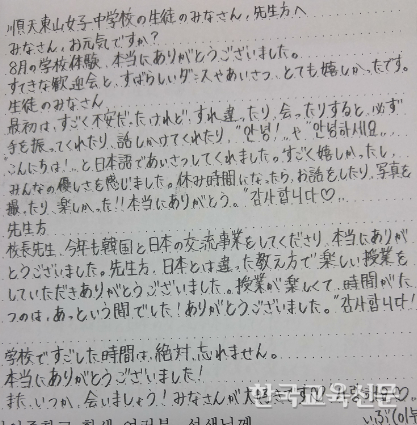 順天東山女子中学校の生徒のみなさん,先生方へ
みなさん、お元気ですか?
8月の学校体験、本当にありがとうございました。
すてきな歓迎会と、すばらしいダンスやあいさつ、とても嬉しかったです。
生徒のみなさん
最初は、すごく不安だったけれど、すれ違ったり、会ったりすると、必ず
手を振ってくれたり、話しかけてくれたり、"안녕!"や、"안녕하세요"
"こんにちは!"と日本語であいさつしてくれました。すごく嬉しかったし、
みんなの優しさを感じました。休み時間になったら、お話をしたり、写真を
撮ったり、楽しかった!!本当にありがとう。"감사합니다♡"
先生方
校長先生、今年も韓国と日本の交流事業をしてくださり、本当にありが
とうございました。先生方、日本とは違った教え方で楽しい授業を
していただきありがとうございました。授業が楽しくて、時間がた
つのは、あっという間でした!ありがとうございました。"감사합니다!
学校ですごした時間は、絶対、忘れません。
本当にありがとうございました!
また、いつか、会いましょう!みなさんが大好きです!
한국교육신문